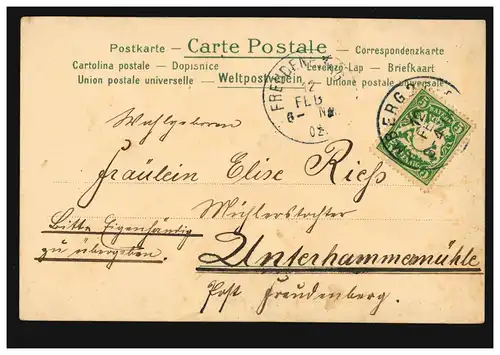 Postkarte – Carte Postale – Correspondenzkarte
Cartolina postale – Dopisnice
Levelező-Lap – Briefkaart
Union postale universelle – Weltpostverein – Unione postale universale
12
FEB
6- Nm.
Wohlgeboren
Fräulein Elise Rieß
Müllerstochter
Bitte Eigenhändig
zu übergeben.
Unterhammermühle
Post Freudenberg.